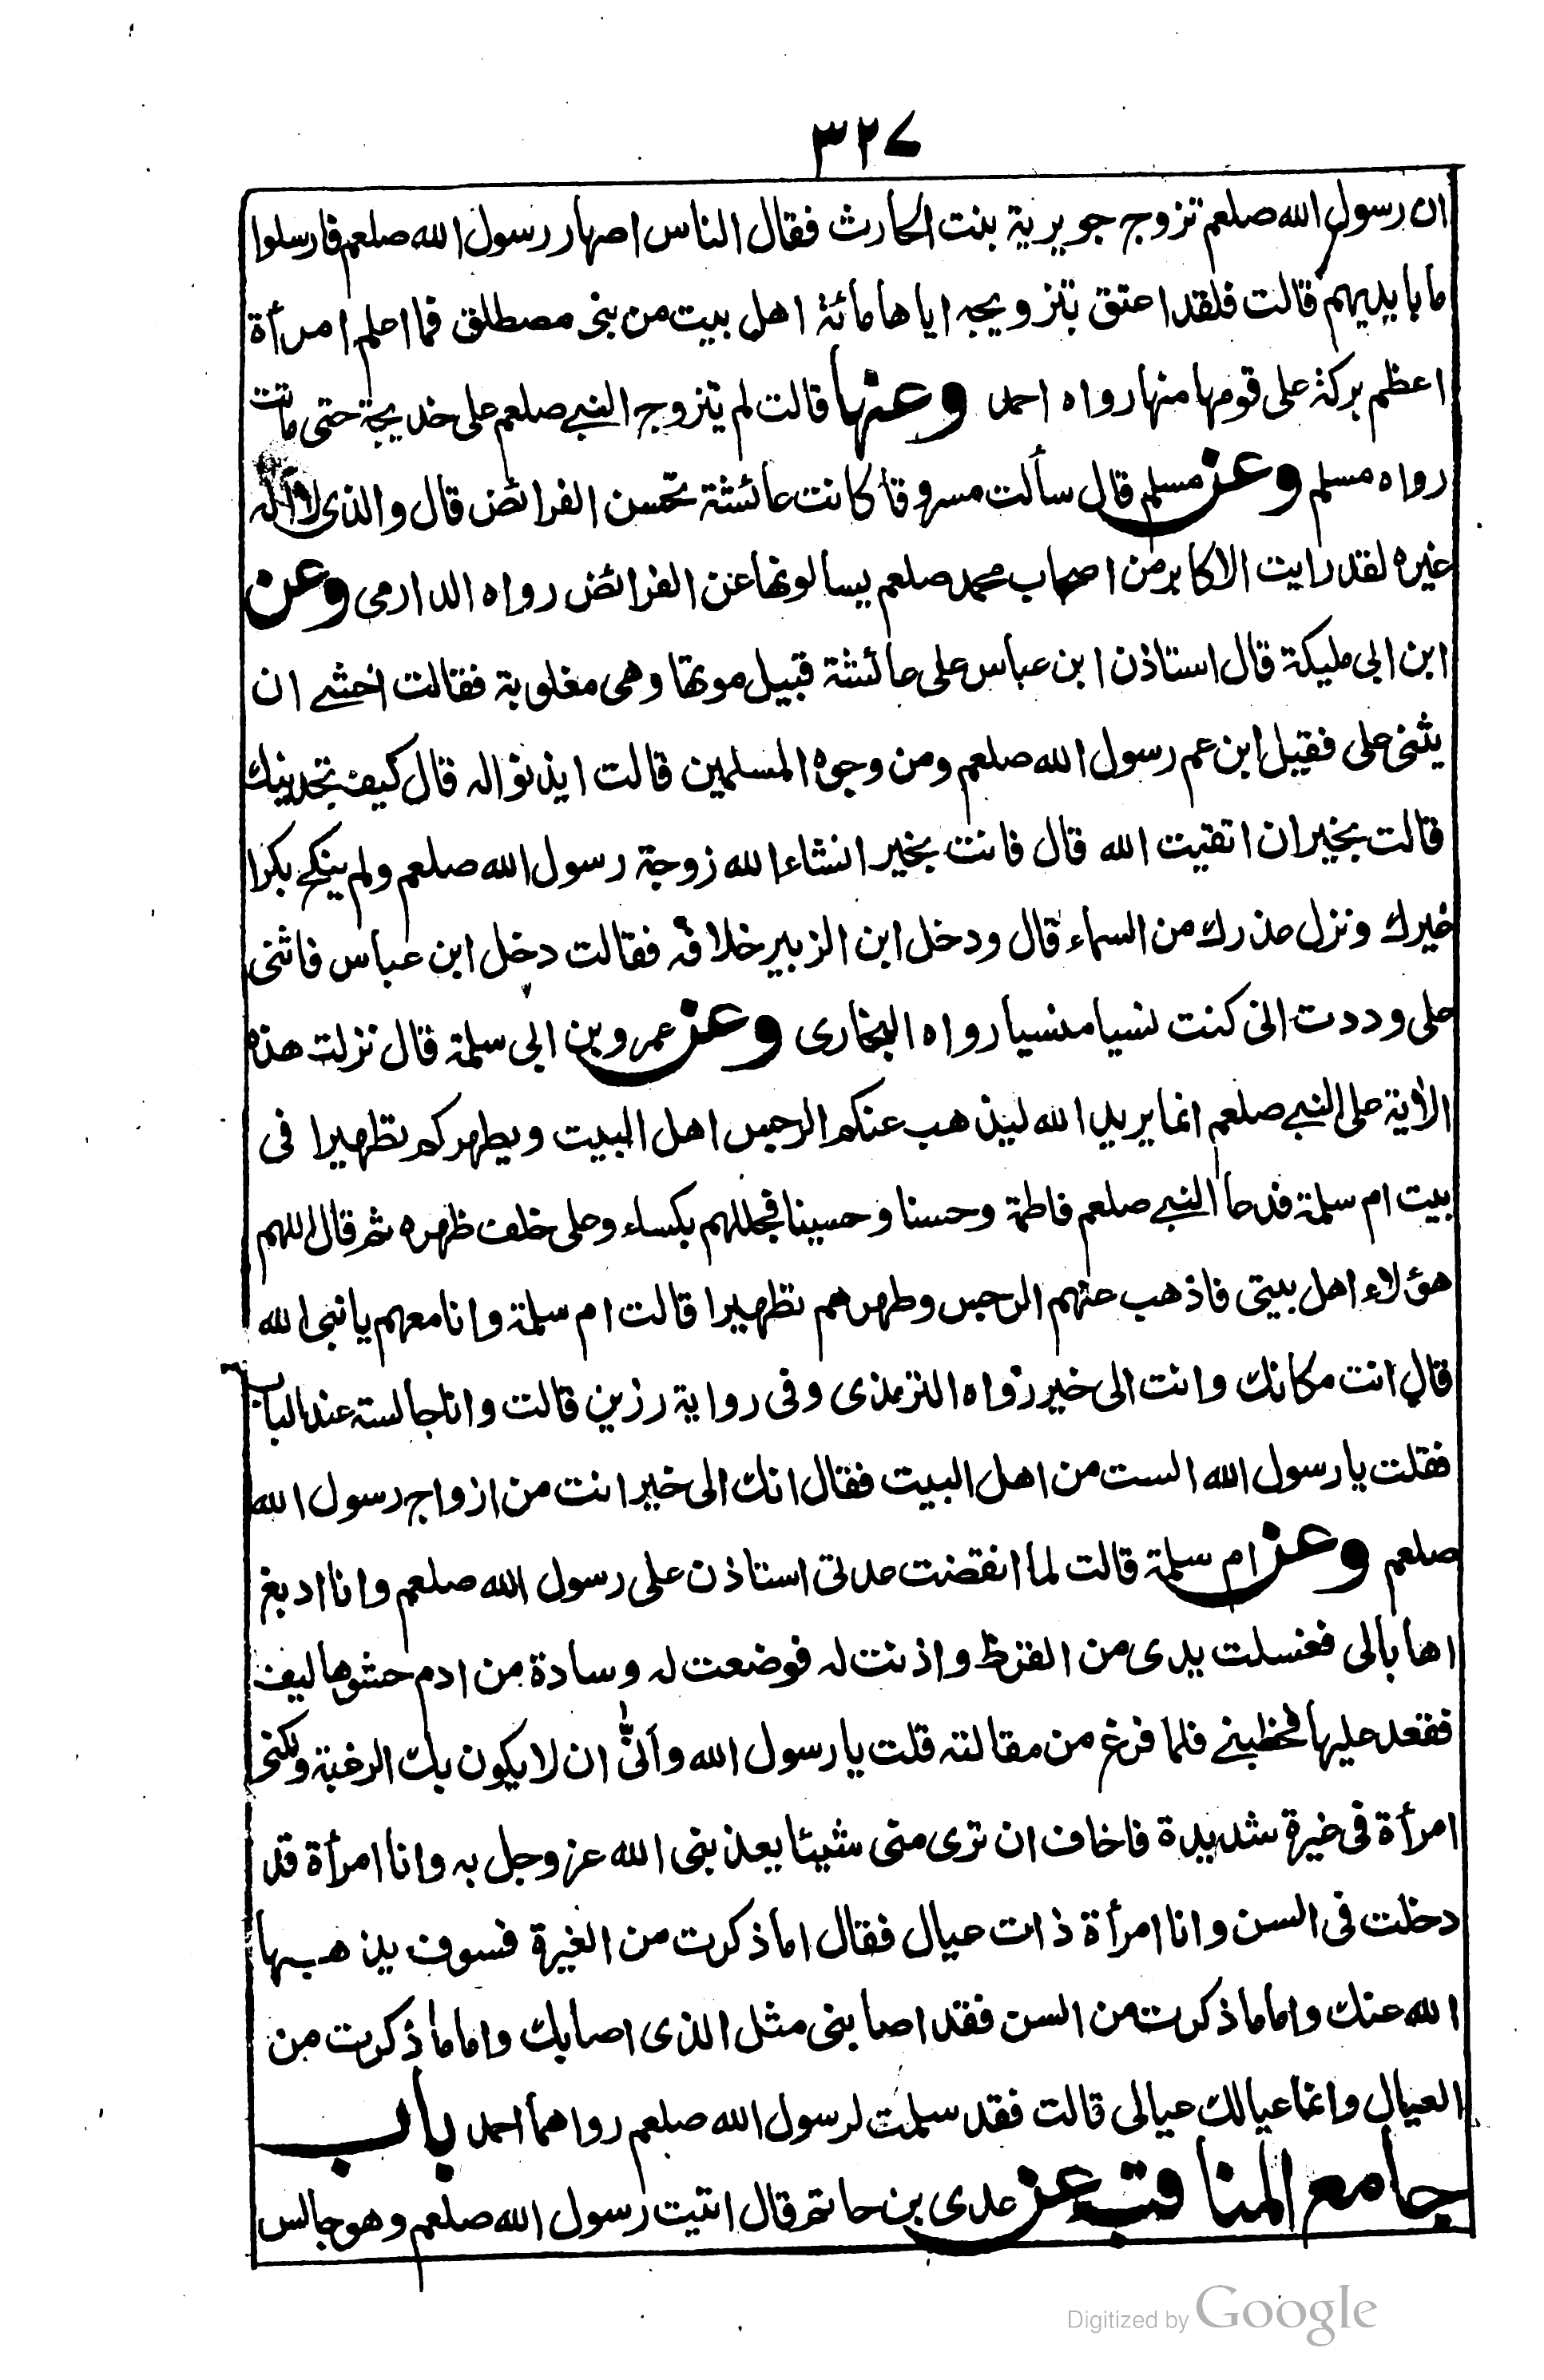 ٣٢٧
ان رسول الله صلعم تزوج جويرية بنت الحارث فقال الناس اصهار رسول الله صلعم فارسلوا
ما بايديهم قالت فلقد اعتق بتزويجه اياها مائة اهل بيت من بنى مصطلق فما اعلم امرأة
اعظم بركة على قومها منها رواه احمد وعنها قالت لم يتزوج النبي صلعم على خديجة حتى ماتت
رواه مسلم وعن مسلم قال سألت مسروقا كانت عائشة تحسن الفرائض قال والذى لا اله
غيره لقد رايت الاكابر من اصحاب محمد صلعم يسالونها عن الفرائض رواه الدارمى وعن
ابن ابى مليكة قال استاذن ابن عباس على عائشة قبيل موتها وهى مغلوبة فقالت اخشى ان
يثنى على فقيل ابن عم رسول الله صلعم ومن وجوه المسلمين قالت ايذنوا له قال كيف تجدينك
قالت بخير ان اتقيت الله قال فانت بخير انشاء الله زوجة رسول الله صلعم ولم ينكح بكرا
غيرك ونزل عذرك من السماء قال ودخل ابن الزبير خلافه فقالت دخل ابن عباس فاثنى
على وددت انى كنت نسيا منسيا رواه البخارى وعن عمرو بن ابى سلمة قال نزلت هذه
الاية على النبي صلعم انما يريد الله ليذهب عنكم الرجس اهل البيت ويطهركم تطهيرا فى
بيت ام سلمة فدعا النبي صلعم فاطمة وحسنا وحسينا فجللهم بكساء وعلى خلف ظهره ثم قال اللهم
هؤلاء اهل بيتى فاذهب عنهم الرجس وطهرهم تطهيرا قالت ام سلمة وانا معهم يا نبى الله
قال انت مكانك وانت الى خير رواه الترمذى وفى رواية رزين قالت وانا جالسة عند الباب
فقلت يا رسول الله الست من اهل البيت فقال انك الى خير انت من ازواج رسول الله
صلعم وعن ام سلمة قالت لما انقضت عدتى استاذن على رسول الله صلعم وانا ادبغ
اهابا لى فغسلت يدى من القرظ واذنت له فوضعت له وسادة من ادم حشوها ليف
فقعد عليها فخطبنى فلما فرغ من مقالته قلت يا رسول الله وانّى ان لا يكون بك الرغبة ولكنى
امرأة فى غيرة شديدة فاخاف ان ترى منى شيئا يعذبنى الله عز وجل به وانا امرأة قد
دخلت فى السن وانا امرأة ذات عيال فقال اما ذكرت من الغيرة فسوف يذهبها
الله عنك واما ما ذكرت من السن فقد اصابنى مثل الذى اصابك واما ما ذكرت من
العيال وانما عيالك عيالى قالت فقد سلمت لرسول الله صلعم رواهما احمد باب
جامع المناقب عن عدى بن حاتم قال اتيت رسول الله صلعم وهو جالس
Digitized by Google